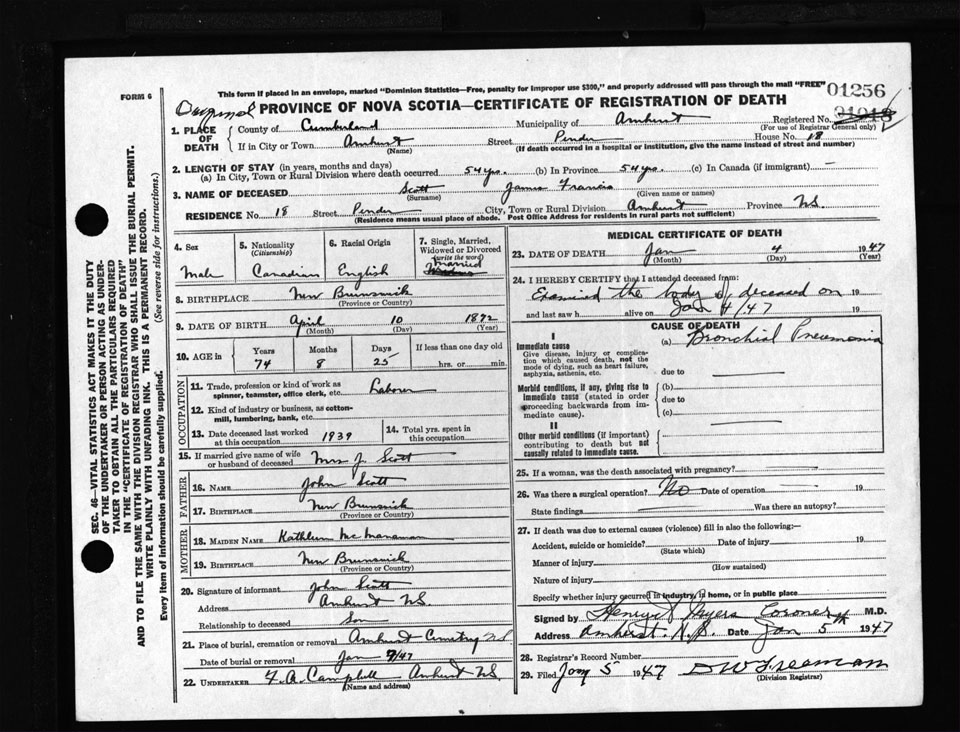 FORM 6
This form if placed in an envelope, marked "Dominion Statistics—Free, penalty for improper use $300," and properly addressed will pass through the mail "FREE"
01256
Original PROVINCE OF NOVA SCOTIA—CERTIFICATE OF REGISTRATION OF DEATH
Registered No.
(For use of Registrar General only)
1. PLACE OF DEATH
County of Cumberland Municipality of Amherst
If in City or Town Amherst Street Pender House No. 18
(Name) (If death occurred in a hospital or institution, give the name instead of street and number)
2. LENGTH OF STAY (in years, months and days)
(a) In City, Town or Rural Division where death occurred 54 yrs. (b) In Province 54 yrs. (c) In Canada (if immigrant) —
3. NAME OF DECEASED Scott James Francis
(Surname) (Given name or names)
RESIDENCE No. 18 Street Pender City, Town or Rural Division Amherst Province N.S.
(Residence means usual place of abode. Post Office Address for residents in rural parts not sufficient)
4. Sex
Male
5. Nationality
(Citizenship)
Canadian
6. Racial Origin
English
7. Single, Married, Widowed or Divorced
(write the word)
Married
8. BIRTHPLACE New Brunswick
(Province or Country)
9. DATE OF BIRTH April 10 1872
(Month) (Day) (Year)
10. AGE in
Years Months Days If less than one day old
74 8 25 hrs. or min.
OCCUPATION
11. Trade, profession or kind of work as spinner, teamster, office clerk, etc. Labour
12. Kind of industry or business, as cotton-mill, lumbering, bank, etc.
13. Date deceased last worked at this occupation 1939
14. Total yrs. spent in this occupation
15. If married give name of wife or husband of deceased Mrs J. Scott
FATHER
16. NAME John Scott
17. BIRTHPLACE New Brunswick
(Province or Country)
MOTHER
18. MAIDEN NAME Kathleen McManaman
19. BIRTHPLACE New Brunswick
(Province or Country)
20. Signature of informant John Scott
Address Amherst N.S.
Relationship to deceased Son
21. Place of burial, cremation or removal Amherst Cemetery N.S
Date of burial or cremation Jan 7/47
22. UNDERTAKER F. A. Campbell Amherst N.S.
(Name and address)
MEDICAL CERTIFICATE OF DEATH
23. DATE OF DEATH Jan 4 1947
(Month) (Day) (Year)
24. I HEREBY CERTIFY that I attended deceased from:
Examined the body of deceased on 19
and last saw h alive on Jan 4/47 19
CAUSE OF DEATH
I
Immediate cause (a) Bronchial Pneumonia
Give disease, injury or complication which caused death, not the mode of dying, such as heart failure, asphyxia, asthenia, etc.
due to
Morbid conditions, if any, giving rise to immediate cause (stated in order proceeding backwards from immediate cause).
(b)
due to
(c)
II
Other morbid conditions (if important) contributing to death but not causally related to immediate cause.
25. If a woman, was the death associated with pregnancy?
26. Was there a surgical operation? No Date of operation 19
State findings Was there an autopsy?
27. If death was due to external causes (violence) fill in also the following:—
Accident, suicide or homicide? Date of injury 19
(State which)
Manner of injury
(How sustained)
Nature of injury
Specify whether injury occurred in industry, in home, or in public place
Signed by Coroner M.D.
Address Amherst. N.S. Date Jan 5 1947
28. Registrar's Record Number
29. Filed Jany 5 1947 D W Freeman
(Division Registrar)
SEC. 46—VITAL STATISTICS ACT MAKES IT THE DUTY
OF THE UNDERTAKER OR PERSON ACTING AS UNDER-
TAKER TO OBTAIN ALL THE PARTICULARS REQUIRED
IN THE "CERTIFICATE OF REGISTRATION OF DEATH"
AND TO FILE THE SAME WITH THE DIVISION REGISTRAR WHO SHALL ISSUE THE BURIAL PERMIT.
WRITE PLAINLY WITH UNFADING INK. THIS IS A PERMANENT RECORD.
Every item of information should be carefully supplied. (See reverse side for instructions.)